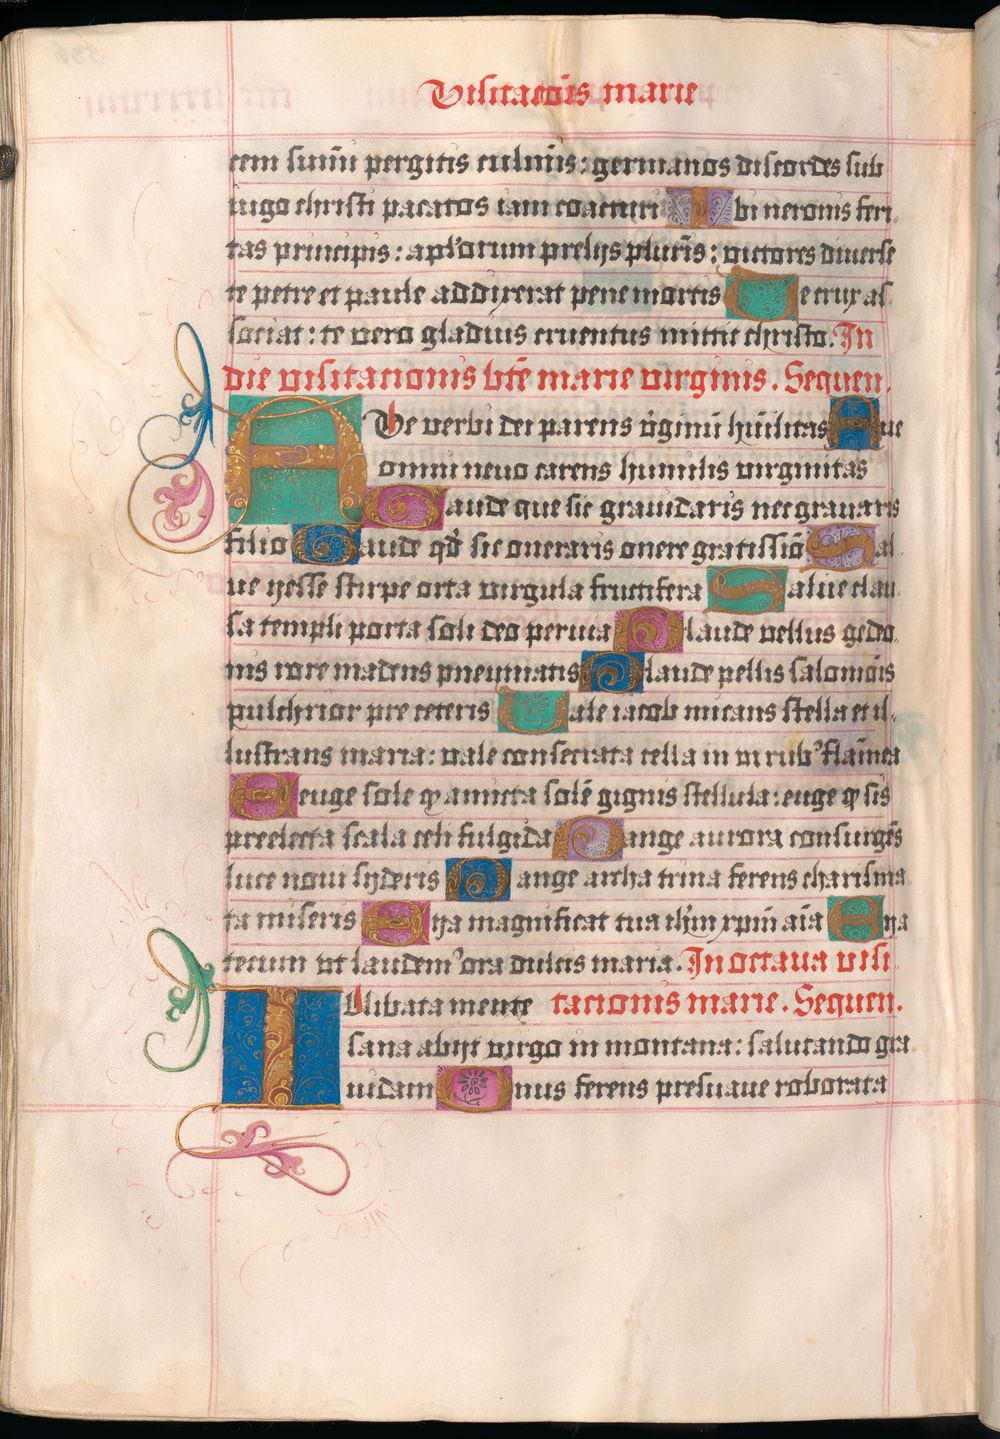 Visitacōis marie
cem sumū pergitis culmīs : germanos discordes sub
iugo christi pacatos iam coacturi Ibi neronis feri-
tas principis : apl'orum prelijs plurīs : victores diuerse
te petre et paule addixerat pene mortis Te crux as-
sociat : te vero gladius cruentus mittit christo. In
die visitationis btē marie virginis. Sequen.
AUe verbi dei parens v̄ginū hūilitas Aue
omni neuo carens humilis virginitas
Gaude que sic grauidaris nec grauaris
filio Gaude qd̄ sic oneraris onere gratissiō Sal-
ue yesse stirpe orta virgula fructifera Salue clau-
sa templi porta soli deo peruia Plaude vellus gedeo-
nis rore madens pneumatis Plaude pellis salomōis
pulchrior pre ceteris Vale iacob micans stella et il-
lustrans maria : vale consecrata cella in m rubꝰ flāmea
Euge sole q amicta solē gignis stellula : euge q sis
preelecta scala celi fulgida Pange aurora consurgēs
luce noui syderis Pange archa trina ferens charisma-
ta miseris Eya magnificat tua ihm̄ xpm̄ aīa Eya
tecum vt laudemꝰ ora dulcis maria. In octaua visi-
tationis marie. Sequen.
Illibata mente
sana abijt virgo in montana : salutando gra-
uidam Onus ferens presuaue roborata